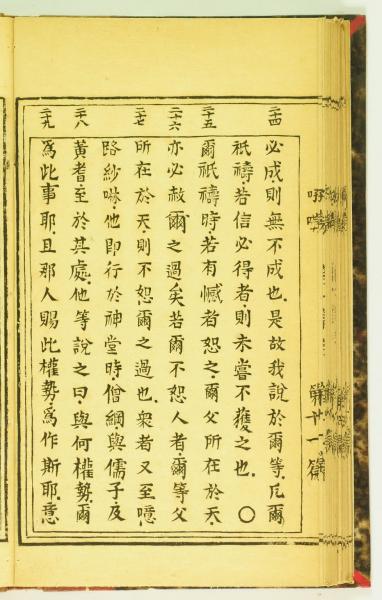 二十四
必成則無不成也.是故我說於爾等.凡爾
祇禱.若信必得者.則未嘗不獲之也.〇
二十五
爾祇禱時.若有憾者恕之.爾父所在於天.
二十六
亦必赦爾之過矣.若爾不恕人者.爾等父
二十七
所在於天.則不恕爾之過也.衆者又至噫.
路紗啉.他即行於神堂時.僧綱.與儒子.及
二十八
黃耆至於其處.他等說之曰.與何權勢.爾
二十九
爲此事耶.且那人賜此權勢.爲作斯耶.意